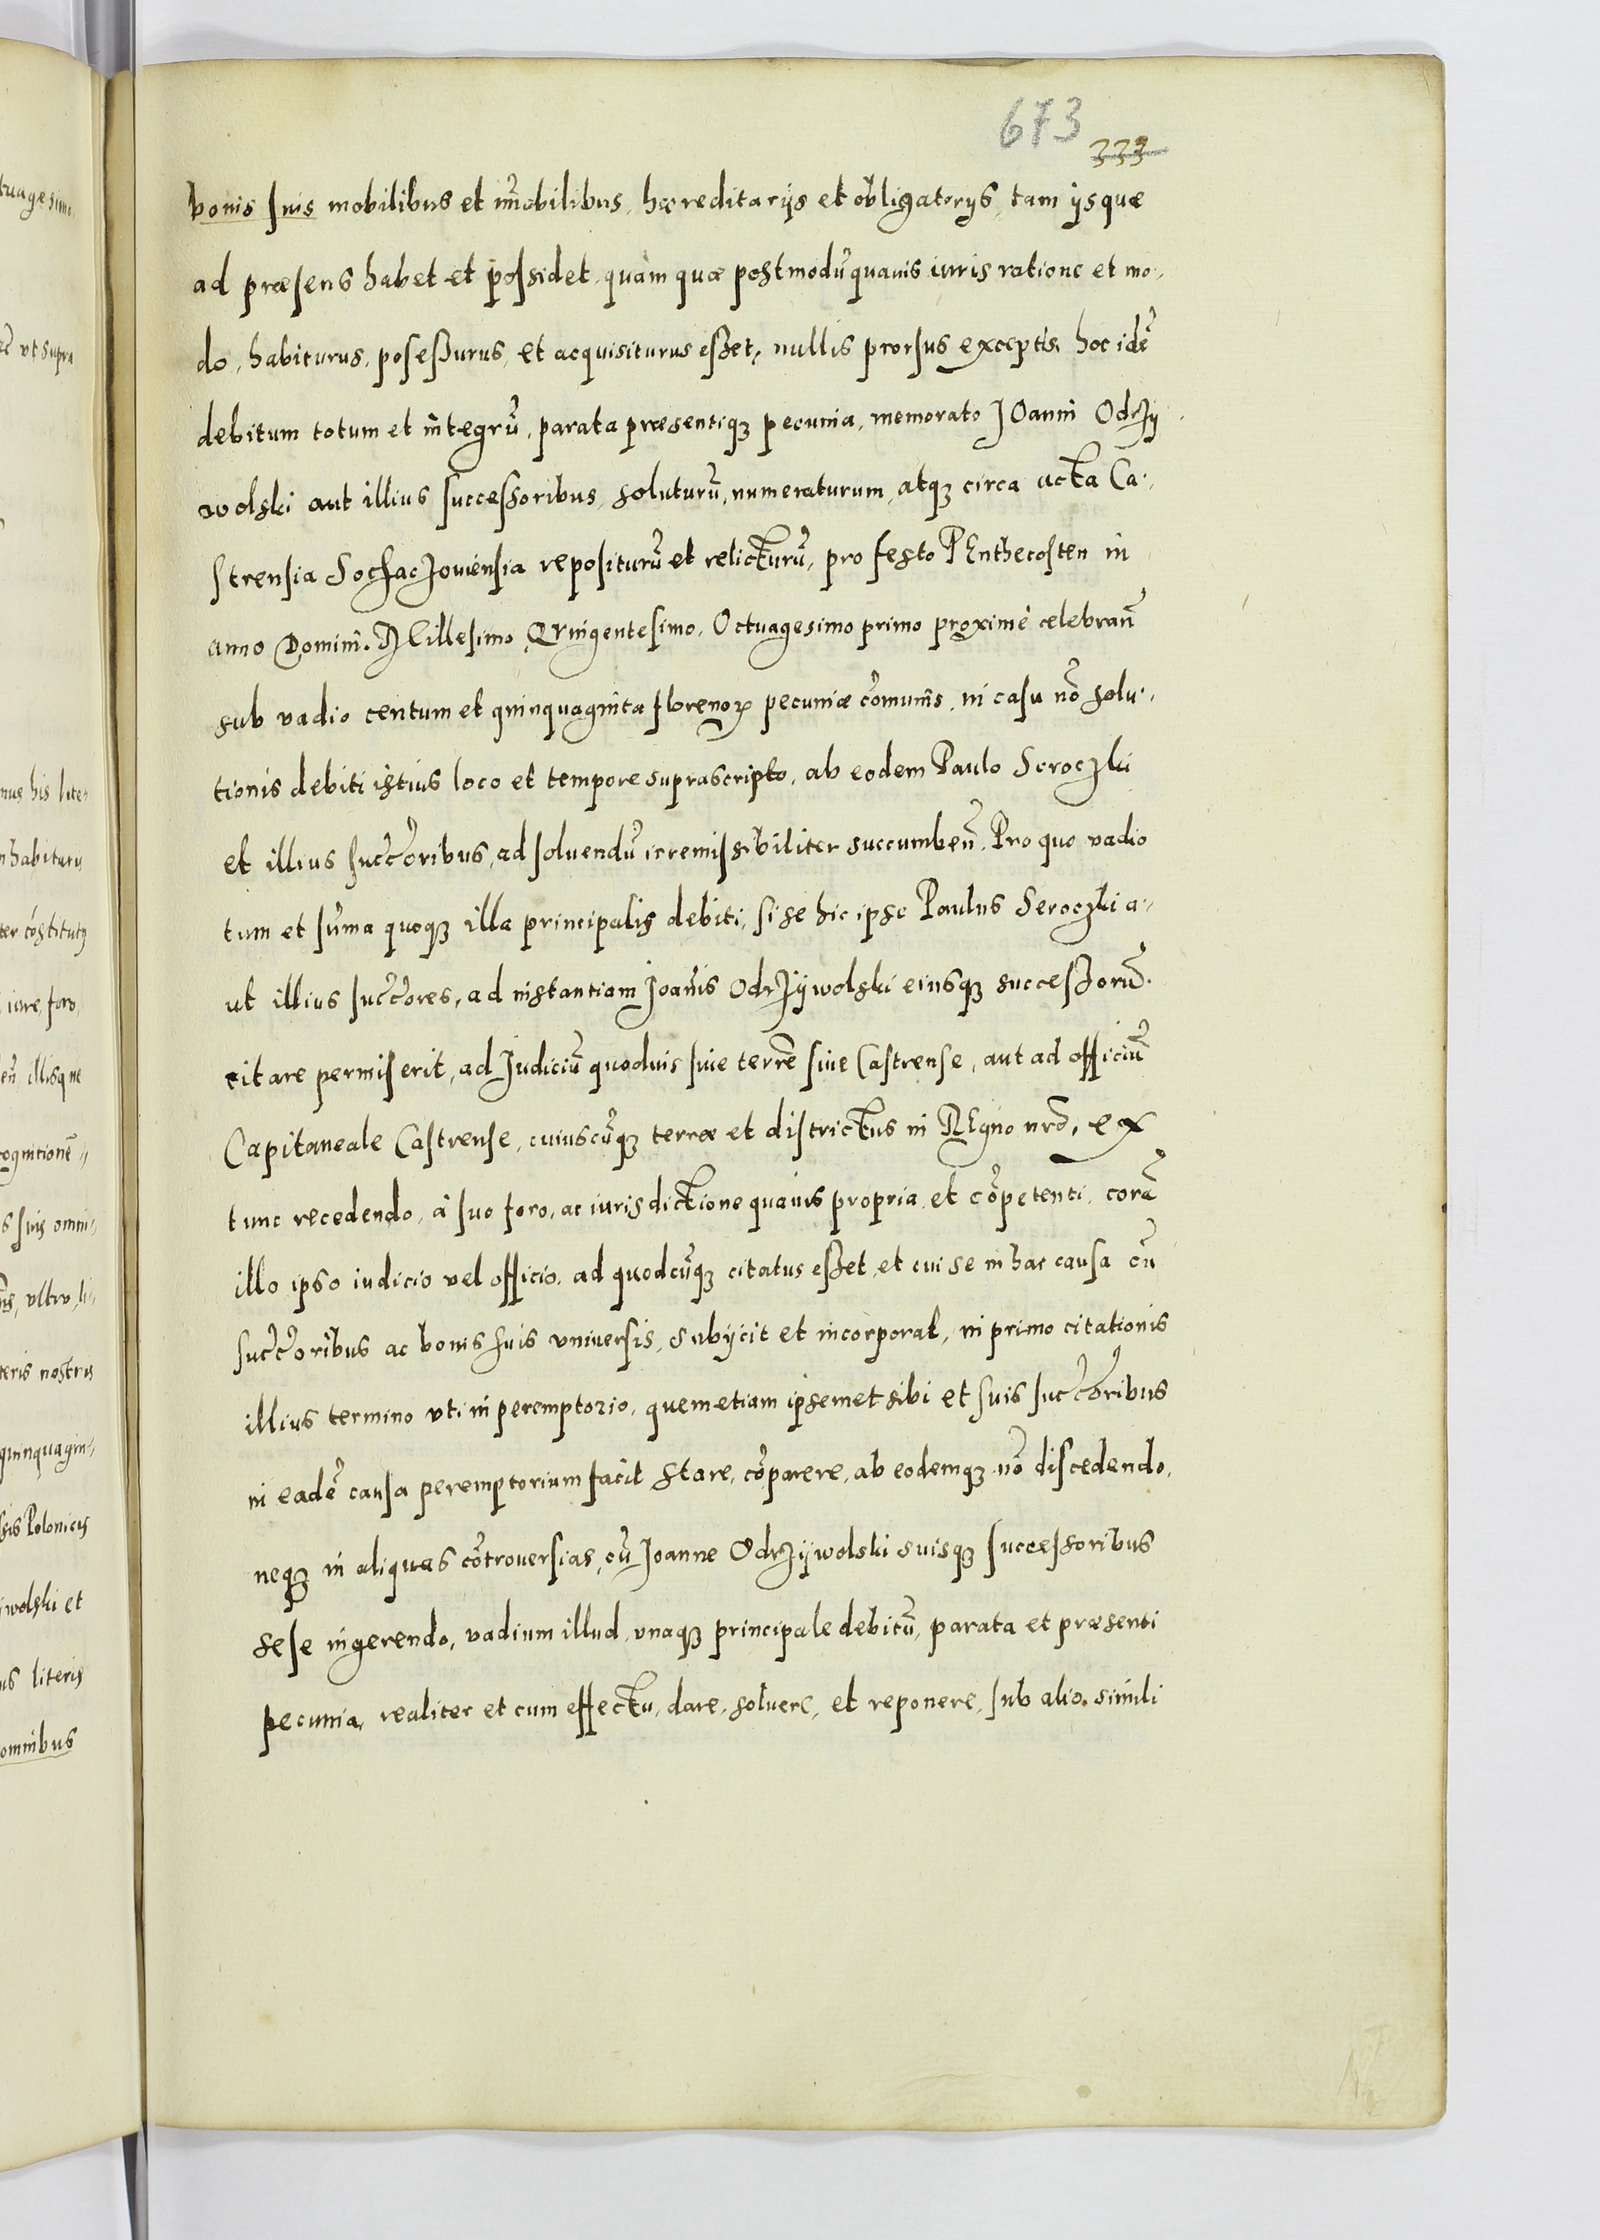 673
333
bonis suis mobilibus et im̃obilibus, hæreditarijs et obligatorijs, tam ijs quæ
ad præsens habet et possidet, quàm quæ postmodũ quauis iuris ratione et mo-
do, habiturus, posessurus, et acquisiturus esset, nullis prorsus exceptis, hoc idẽ
debitum totum et integrũ, parata præsentiq3 pecunia, memorato IOanni Odrzy
wolski aut illius successoribus, soluturũ, numeraturum, atq3 circa acta Ca-
strensia Sochaczouiensia repositurũ et relicturũ, pro festo PEnthecosten in
anno Domini. Millesimo, Quingentesimo, Octuagesimo primo proximè celebrañ
sub vadio centum et quinquaginta florenoꝝ pecuniæ cõmunis, in casu nõ solu-
tionis debiti istius loco et tempore suprascripto, ab eodem Paulo Seroczki
et illius succ̃oribus, ad soluendũ irremissibiliter succumbeñ. Pro quo vadio
tum et sum̃a quoq3 illa principalis debiti, si se hic ipse Paulus Seroczki a-
ut illius succ̃ores, ad instantiam Joañis Odrzywolski eiusq3 successorũ.
citare permiserit, ad Judiciũ quoduis siue terrẽ siue Castrense, aut ad officiũ
Capitaneale Castrense, cuiuscũq3 terræ et districtus in REgno nrõ, ex
tunc recedendo, à suo foro, ac iurisdictione quauis propria et cõpetenti, corã
illo ipso iudicio vel officio, ad quodcũq3 citatus esset, et cui se in hac causa cũ
succ̃oribus ac bonis suis vniuersis, subijcit et incorporat, in primo citationis
illius termino vti in peremptorio, quem etiam ipsemet sibi et suis succ̃oribus
in eadẽ causa peremptorium facit stare, cõparere, ab eodemq3 nõ discedendo,
neq3 in aliquas cõtrouersias, cũ Joanne Odrzywolski suisq3 successoribus
sese ingerendo, vadium illud, vnaq3 principale debitũ, parata et præsenti
pecunia, realiter et cum effectu, dare, soluere, et reponere, sub alio, simili